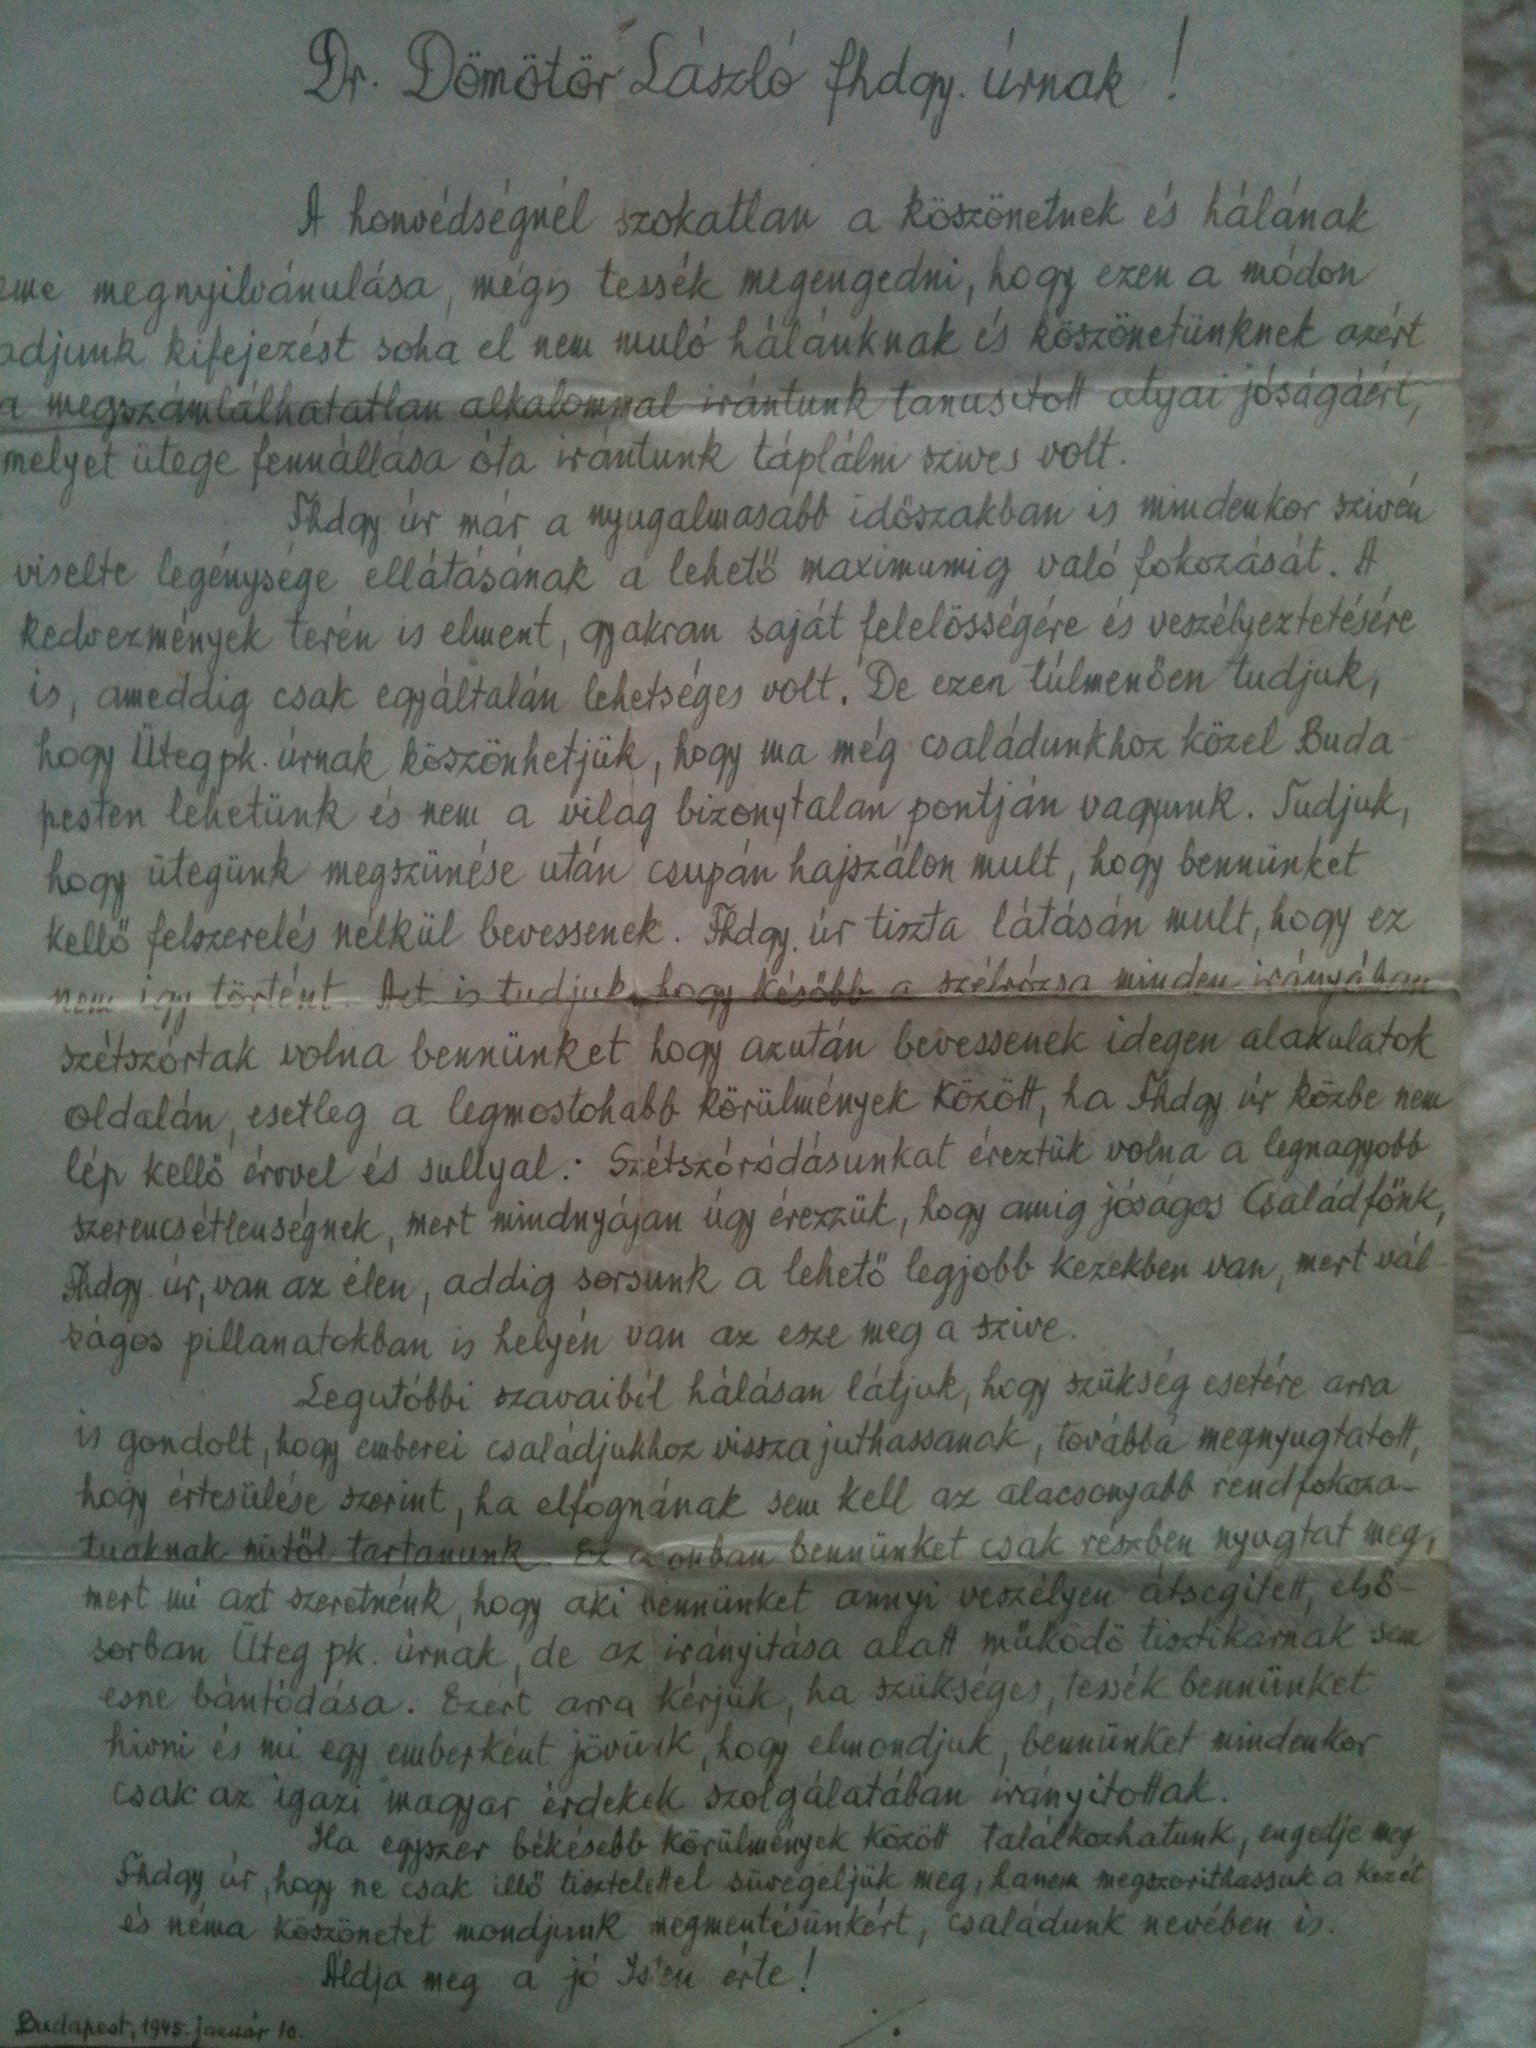 Dr. Dömötör László fhdgy. úrnak!
A honvédségnél szokatlan a köszönetnek és hálának
eme megnyilvánulása, mégis tessék megengedni, hogy ezen a módon
adjunk kifejezést soha el nem muló hálánknak és köszönetünknek azért
a megszámlálhatatlan alkalommal irántunk tanusitott atyai jóságáért,
melyet ütege fennállása óta irántunk táplálni szives volt.
Fhdgy. úr már a nyugalmasabb időszakban is mindenkor szivén
viselte legénysége ellátásának a lehető maximumig való fokozását. A
kedvezmények terén is elment, gyakran saját felelősségére és veszélyeztetésére
is, ameddig csak egyáltalán lehetséges volt. De ezen túlmenően tudjuk,
hogy Üteg pk. úrnak köszönhetjük, hogy ma még családunkhoz közel Buda-
pesten lehetünk és nem a világ bizonytalan pontján vagyunk. Tudjuk,
hogy ütegünk megszünése után csupán hajszálon mult, hogy bennünket
kellő felszerelés nélkül bevessenek. Fhdgy. úr tiszta látásán mult, hogy ez
nem igy történt. Azt is tudjuk, hogy később a szélrózsa minden irányában
szétszórtak volna bennünket hogy azután bevessenek idegen alakulatok
oldalán, esetleg a legmostohább körülmények között, ha Fhdgy. úr közbe nem
lép kellő érvvel és sullyal. Szétszóródásunkat éreztük volna a legnagyobb
szerencsétlenségnek, mert mindnyájan úgy érezzük, hogy amig jóságos Családfőnk,
Fhdgy. úr, van az élen, addig sorsunk a lehető legjobb kezekben van, mert vál-
ságos pillanatokban is helyén van az esze meg a szive.
Legutóbbi szavaiból hálásan látjuk, hogy szükség esetére arra
is gondolt, hogy emberei családjukhoz visszajuthassanak, továbbá megnyugtatott,
hogy értesülése szerint, ha elfognának sem kell az alacsonyabb rendfokoza-
tuaknak mitől tartanunk. Ez azonban bennünket csak részben nyugtat meg,
mert mi azt szeretnénk, hogy aki bennünket annyi veszélyen átsegitett, első-
sorban Üteg pk. úrnak, de az irányitása alatt müködő tisztikarnak sem
esne bántódása. Ezért arra kérjük, ha szükséges, tessék bennünket
hivni és mi egy emberként jövünk, hogy elmondjuk, bennünket mindenkor
csak az igazi magyar érdekek szolgálatában irányitottak.
Ha egyszer békésebb körülmények között találkozhatunk, engedje meg
Fhdgy úr, hogy ne csak illő tisztelettel süvegeljük meg, hanem megszorithassuk a kezét
és néma köszönetet mondjunk megmentésünkért, családunk nevében is.
Áldja meg a jó Isten érte!
Budapest, 1945. január 10.